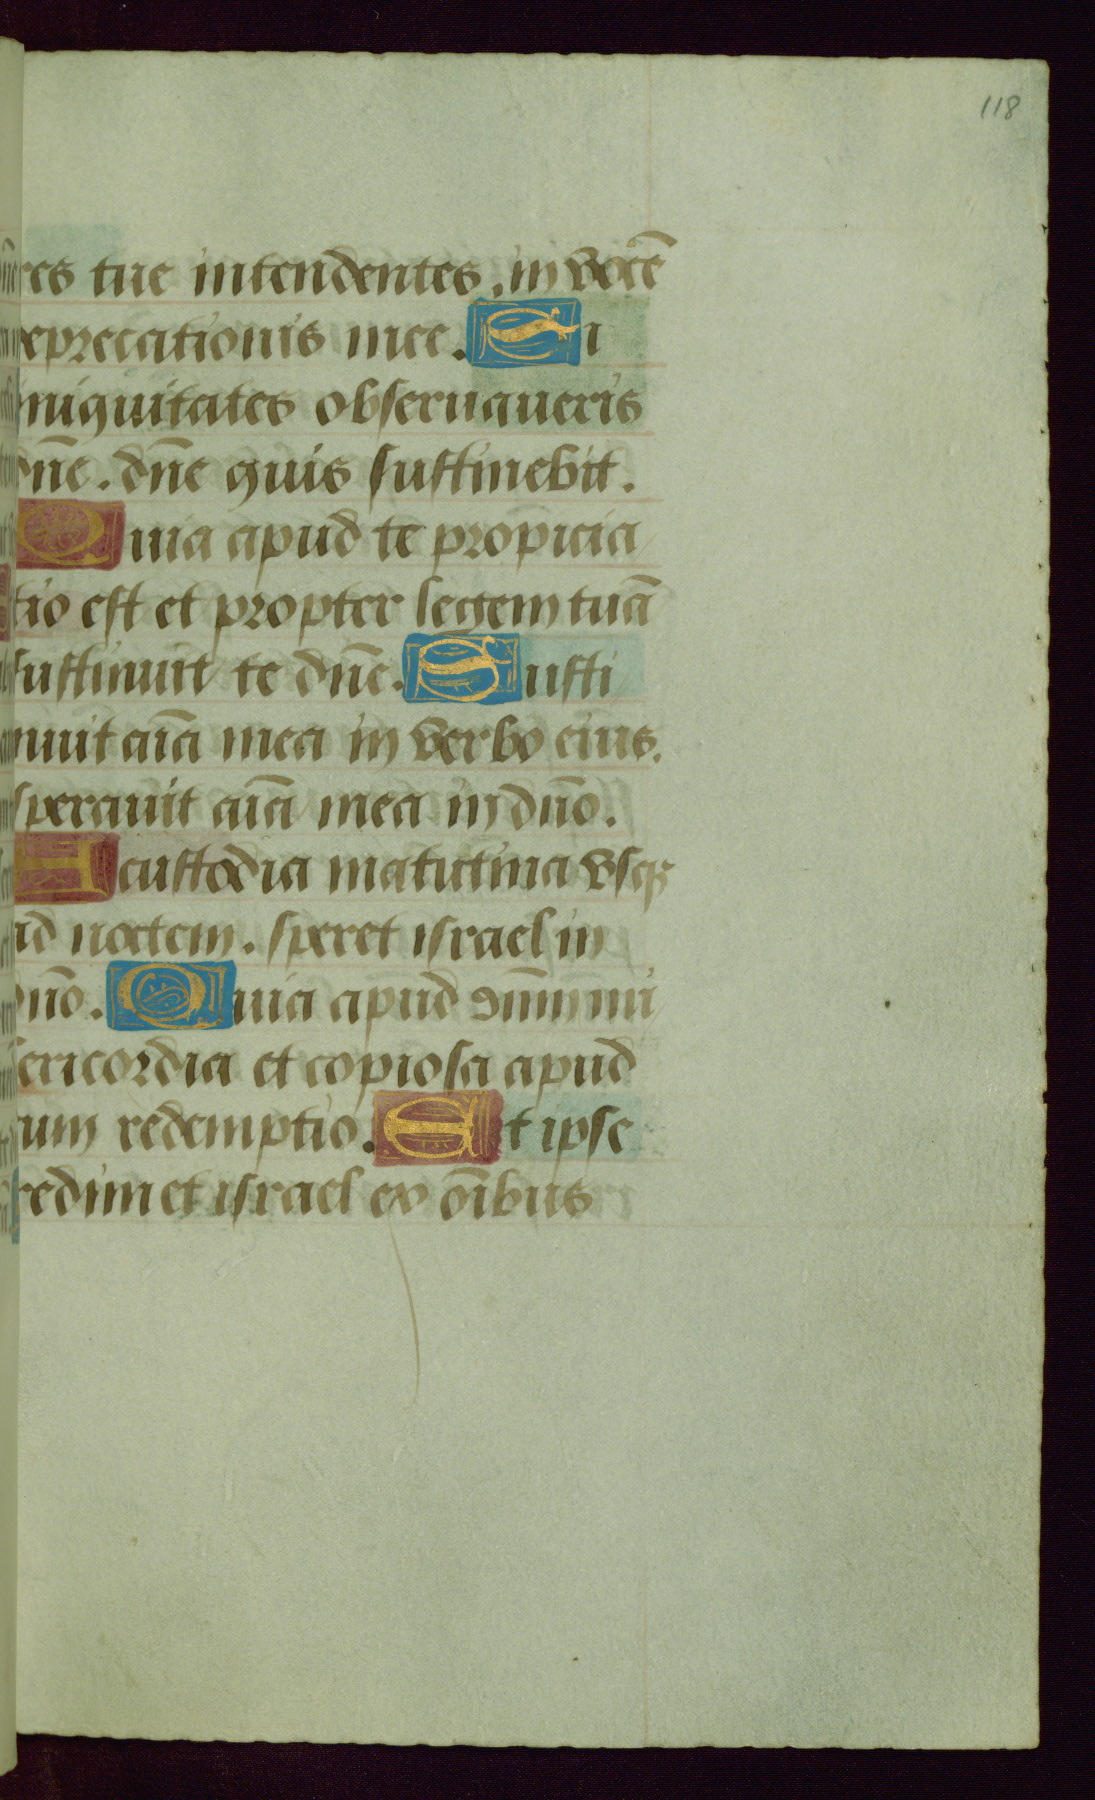 118
res tue intendentes, in vocē
eprecationis mee. Si
iniquitates obseruaueris
dn̄e. dn̄e quis sustinebit.
Quia apud te propicia
tio est et propter legem tuā
sustinuit te dn̄e. Susti
nuit aīa mea in verbo eius.
sperauit aīa mea in dn̄o.
A custodia matutina vsqꝫ
ad noctem. speret israel in
dn̄o. Quia apud dn̄m mi
sericordia et copiosa apud
eum redemptio. Et ipse
redimet israel ex oībus